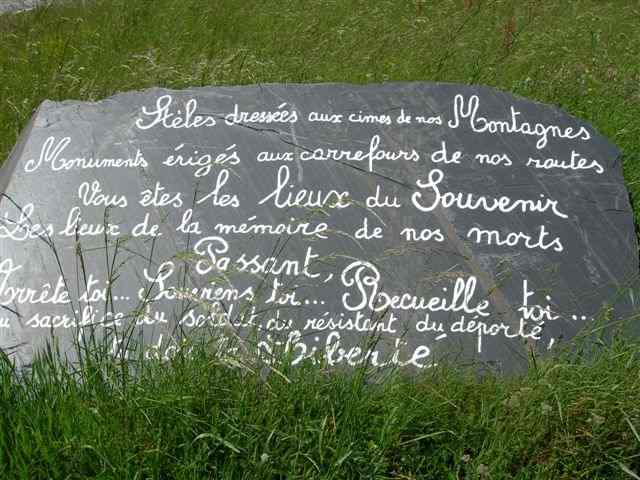 Stèles dressées aux cimes de nos Montagnes
Monuments érigés aux carrefours de nos routes
Vous êtes les lieux du Souvenir
Les lieux de la mémoire de nos morts
Passant,
Arrête toi... Souviens toi... Recueille toi...
au sacrifice du soldat, du résistant, du déporté,
tu dois ta Liberté